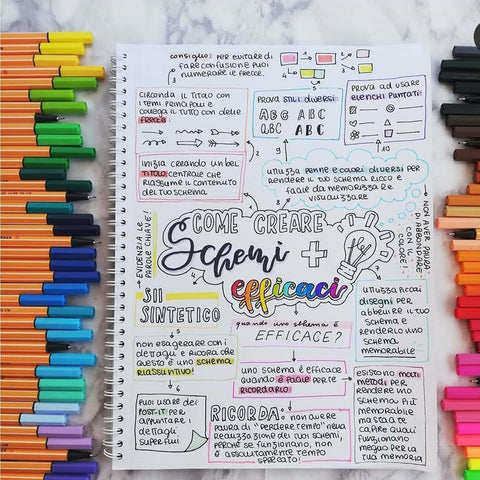 consiglio: PER EVITARE DI
FARE CONFUSIONE PUOI
NUMERARE LE FRECCE.
1
2
3
4
5
CIRCONDA IL TITOLO CON
I TEMI PRINCIPALI E
COLLEGA IL TUTTO CON DELLE
FRECCE
PROVA STILI DIVERSI:
ABG ABC
A,BC ABC
PROVA AD USARE
ELENCHI PUNTATI:
INIZIA CREANDO UN BEL
TITOLO CENTRALE CHE
RIASSUME IL CONTENUTO
DEL TUO SCHEMA
UTILIZZA PENNE E COLORI DIVERSI PER
RENDERE IL TUO SCHEMA RICCO E
FACILE DA MEMORIZZARE E
VISUALIZZARE
NON AVER PAURA
DI ABBONDARE
CON IL
COLORE!!
EVIDENZIA LE
PAROLE CHIAVE!
COME CREARE
Schemi +
efficaci
SII
SINTETICO
quando uno schema è
EFFICACE?
UTILIZZA PICCOLI
disegni PER
ABBELLIRE IL TUO
SCHEMA E
RENDERLO UNO
SCHEMA
MEMORABILE
NON ESAGERARE CON I
DETTAGLI E RICORDA CHE
QUESTO È UNO SCHEMA
RIASSUNTIVO!
UNO SCHEMA È EFFICACE
QUANDO È FACILE PER TE
RICORDARLO
ESISTONO MOLTI
METODI PER
RENDERE UNO
SCHEMA PIÙ
MEMORABILE
MA STA A TE
CAPIRE QUALI
FUNZIONANO
MEGLIO PER LA
TUA MEMORIA
6
PUOI USARE DEI
POST-IT PER
APPUNTARE I
DETTAGLI
SUPERFLUI
RICORDA: NON AVERE
PAURA DI "PERDERE TEMPO" NELLA
REALIZZAZIONE DEI TUOI SCHEMI,
PERCHÉ SE FUNZIONANO, NON
È ASSOLUTAMENTE TEMPO
SPRECATO!